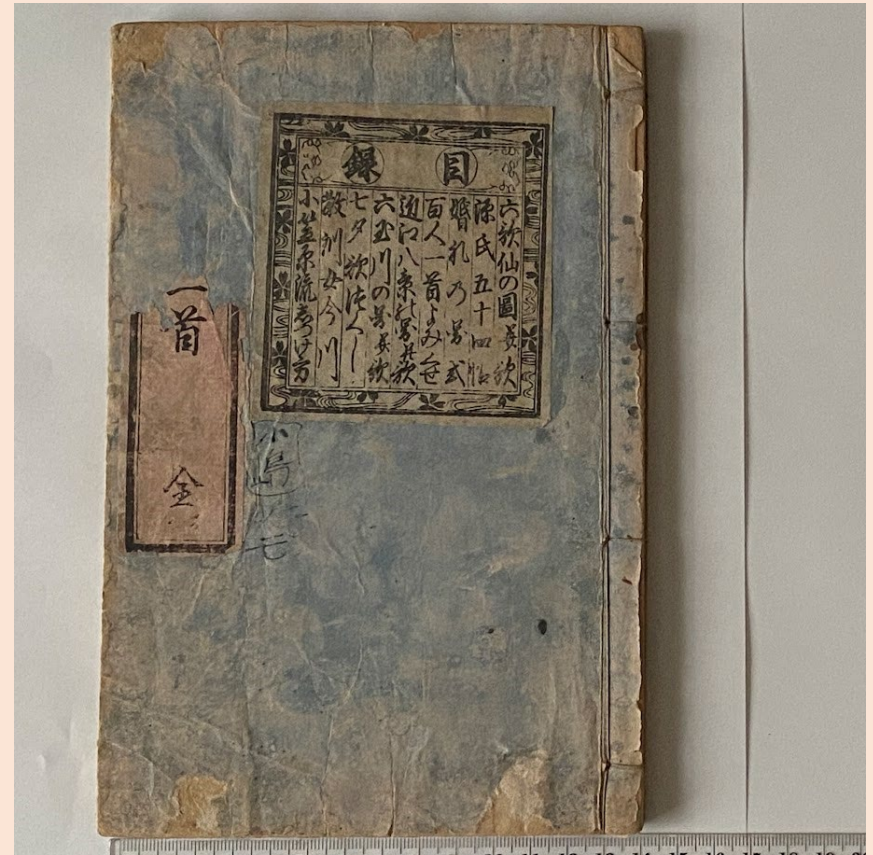 目録
六歌仙の圖並歌
源氏五十四帖
婚礼乃圖式
百人一首よみくせ
近江八景の圖並歌
六玉川の圖並歌
七夕歌づくし
教訓女今川
小笠原流志つけ方
一首
全
小島